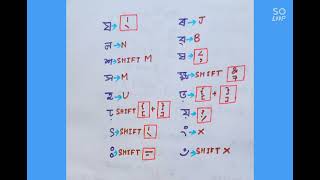 SO
LIMP
য → | \ ৰ → J
ল → N ৱ → B
শ → SHIFT M ষ → < ,
স → M ক্ষ → SHIFT & 7
হ → U ড় → { [ + } ]
SHIFT { [ + } ] য় → ? /
ৎ → SHIFT | \ ং → X
ঃ → SHIFT ঁ → SHIFT X